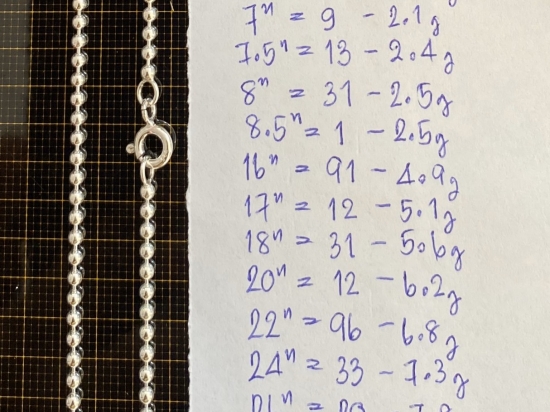 7" = 9 - 2.1g
7.5" = 13 - 2.4g
8" = 31 - 2.5g
8.5" = 1 - 2.5g
16" = 91 - 4.9g
17" = 12 - 5.1g
18" = 31 - 5.6g
20" = 12 - 6.2g
22" = 96 - 6.8g
24" = 33 - 7.3g